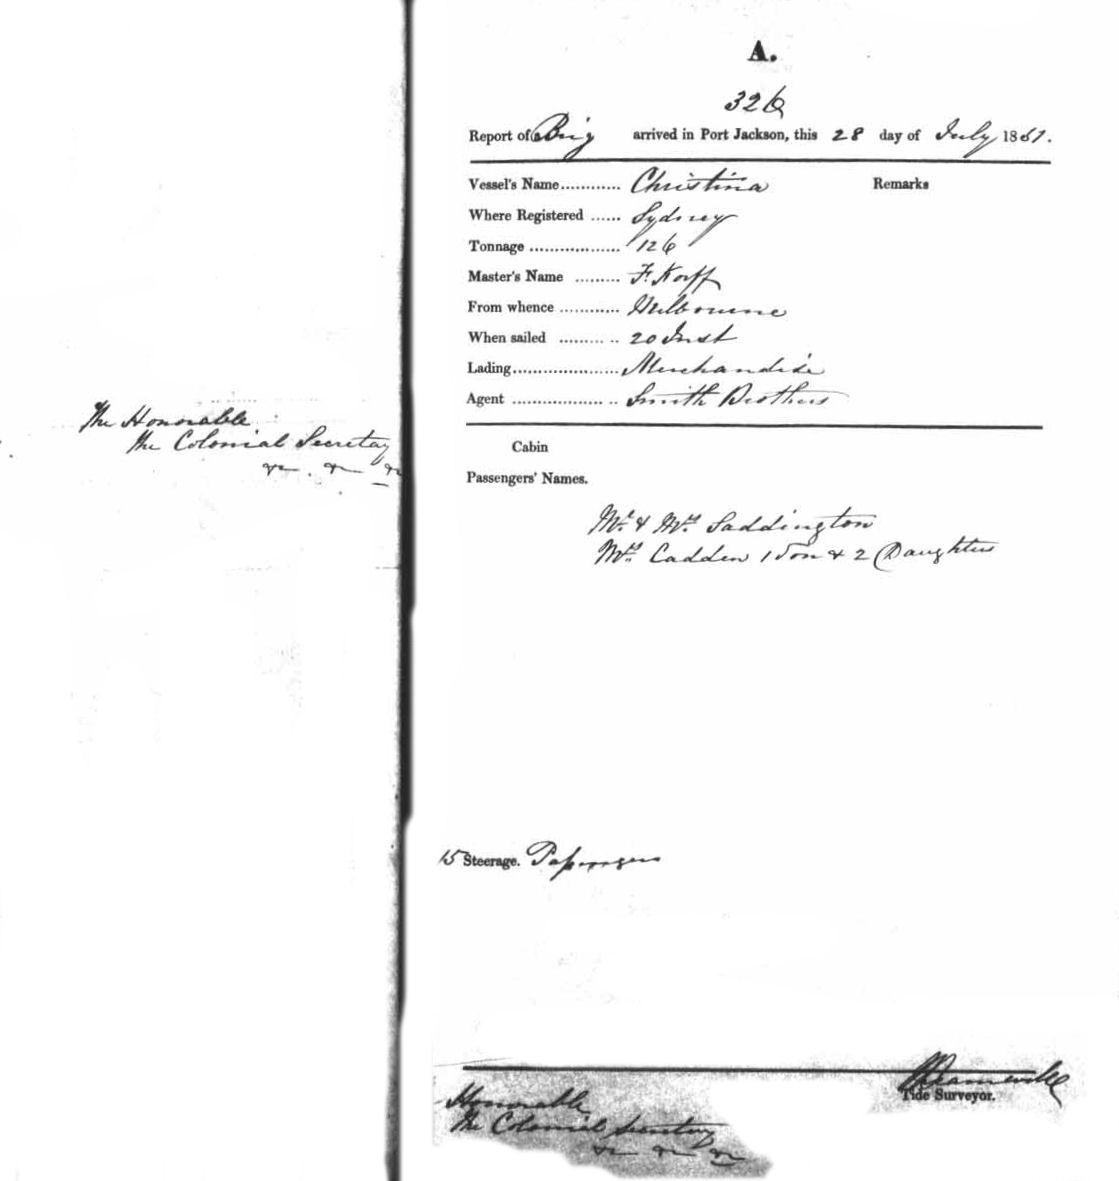 The Honorable
the Colonial Secretary
&c. &c &c
A.
326
Report of Brig arrived in Port Jackson, this 28 day of July 1851.
Vessel's Name............ Christina Remarks
Where Registered ...... Sydney
Tonnage .................. 126
Master's Name ......... F. Korff
From whence ............ Melbourne
When sailed ......... .. 20 Inst
Lading..................... Merchandise
Agent .................. .. Smith Brothers
Cabin
Passengers' Names.
Mr. & Mrs. Saddington
Mrs. Cadden 1 Son & 2 Daughters
15 Steerage. Passengers
Tide Surveyor.
Honorable
the Colonial Secretary
&c &c &c